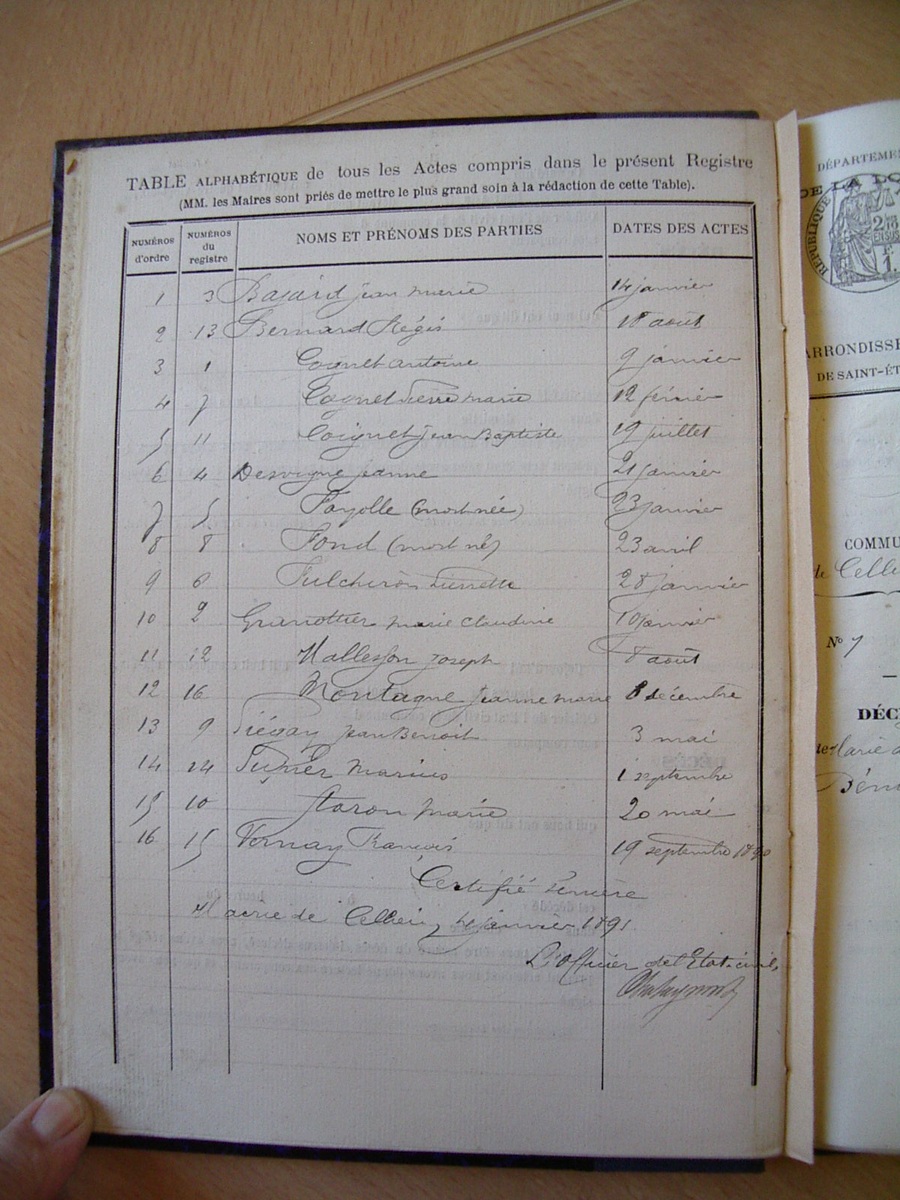 TABLE ALPHABÉTIQUE de tous les Actes compris dans le présent Registre
(MM. les Maires sont priés de mettre le plus grand soin à la rédaction de cette Table).
NUMÉROS d'ordre NUMÉROS du registre NOMS ET PRÉNOMS DES PARTIES DATES DES ACTES
1 3 Bajard jean marie 14 janvier
2 13 Bernard Régis 18 août
3 1 Coignet antoine 9 janvier
4 7 Cognet Pierre marie 12 février
5 11 Coignet jean Baptiste 19 juillet
6 4 Desvigne jeanne 21 janvier
7 5 Fayolle (mort née) 23 janvier
8 8 Fond (mort né) 23 avril
9 6 Fulcheron Pierrette 28 janvier
10 2 Granottier marie Claudine 10 janvier
11 12 Mallesson joseph 8 août
12 16 Montagne jeanne marie 8 décembre
13 9 Piégay jean Benoit 3 mai
14 14 Marius 1 septembre
15 10 marie 20 mai
16 15 Vernay François 19 septembre 1890
Certifié sincère
Mairie de Cellieu 4 janvier 1891
L'Officier de l'Etat-civil,
DÉPARTEME
DE LA LO
RÉPUBLIQUE
ARRONDISSE
DE SAINT-ÉT
COMMU
de Celli
N° 7
DÉC